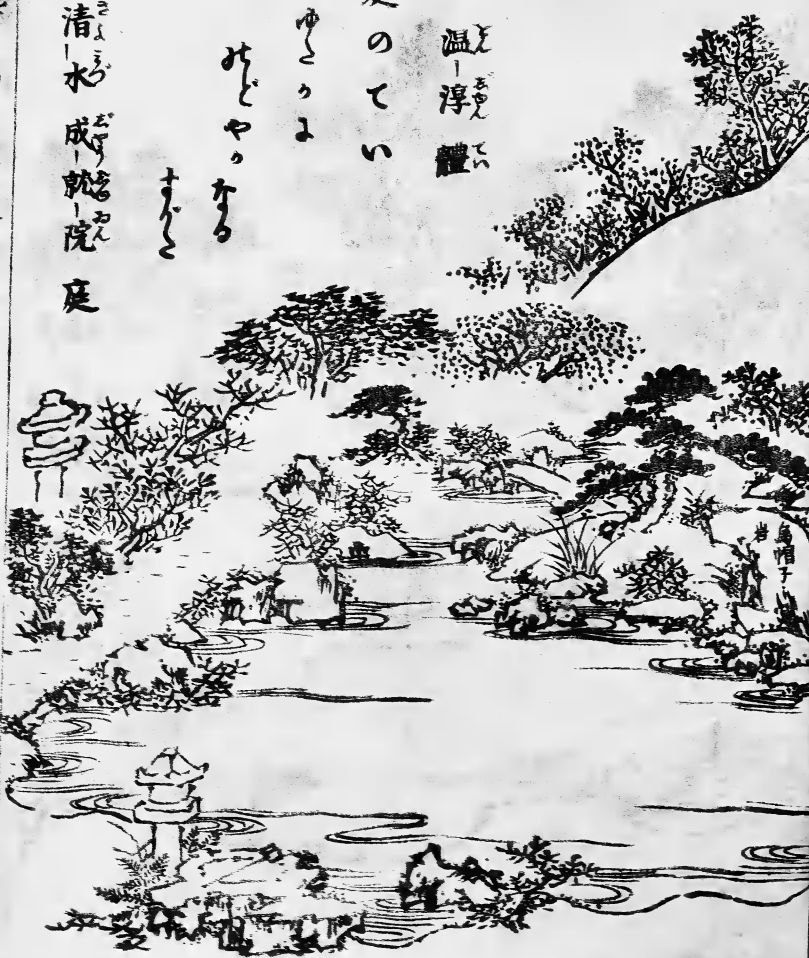 温淳體
のてい
ゆたかに
のどやかなる
すがた
清水成就院庭
烏帽子岩